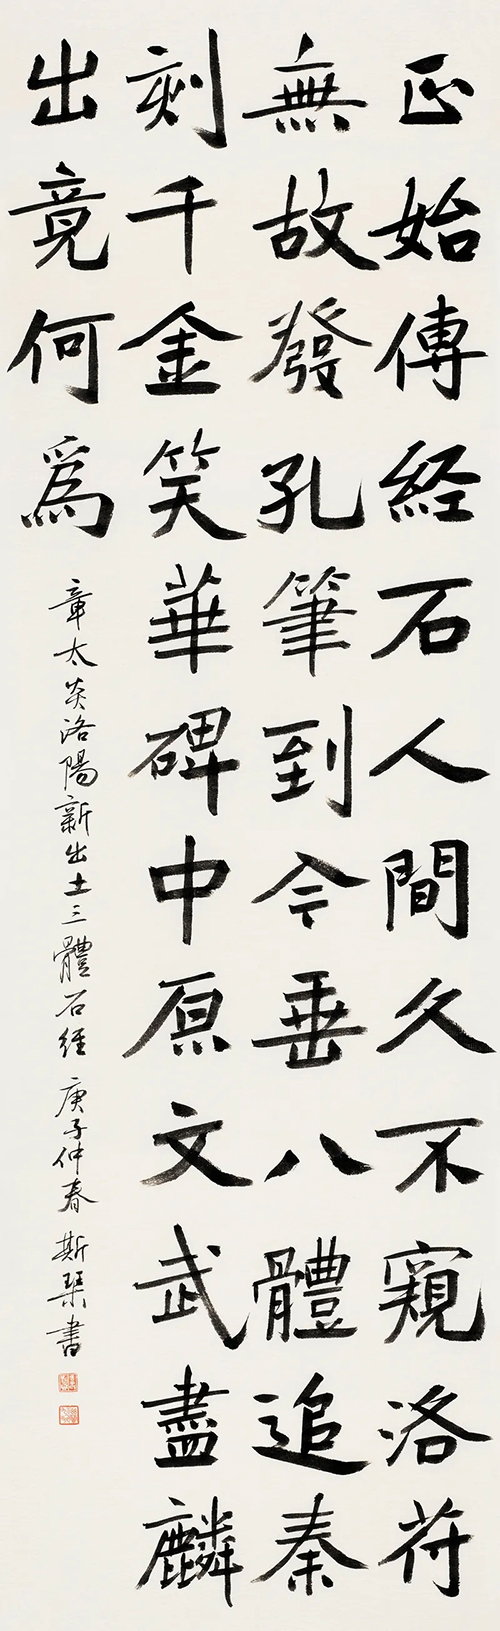 正始傳經石人間久不窺洛符
無故發孔筆到今垂八體追秦
刻千金笑華碑中原文武盡麟
出竟何爲
章太炎洛陽新出土三體石經 庚子仲春 斯琹書